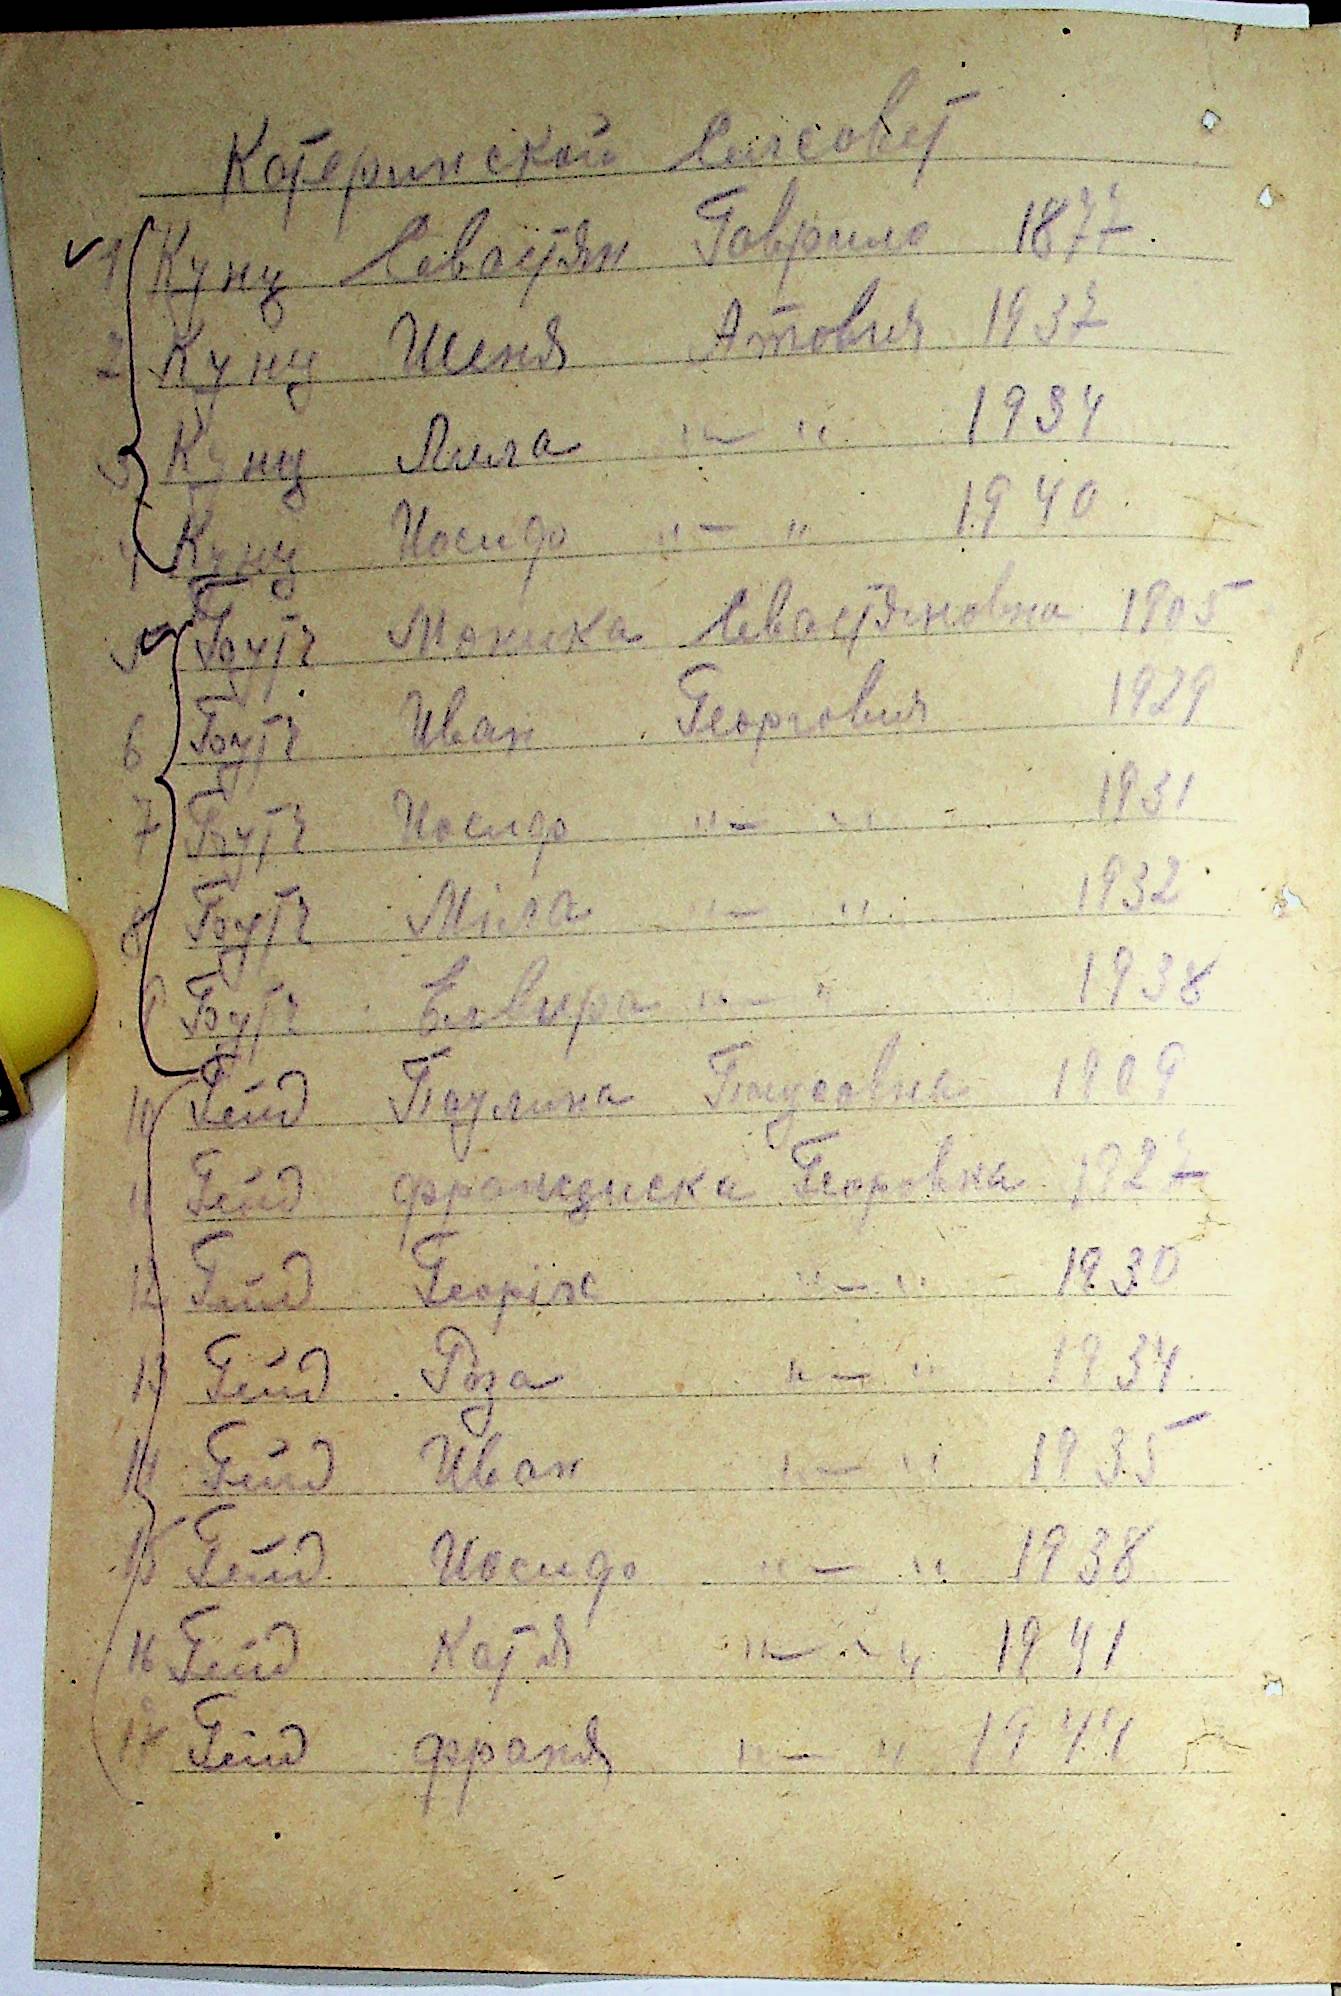 Катеринской Сильсовет
1 Кунц Севастян Гаврило 1877
2 Кунц Женя Атович 1937
3 Кунц Лила -"- 1934
4 Кунц Иосиф "-" 1940
5 Гутч Моника Севастяновна 1905
6 Гутч Иван Георгович 1929
7 Гутч Иосиф "-" 1931
8 Гутч Міла "-" 1932
9 Гутч Елвира "-" 1938
10 Гейд Паулина 1909
11 Гейд Францыска Георовна 1927
12 Гейд Георік "-" 1930
13 Гейд Роза "-" 1934
14 Гейд Иван "-" 1935
15 Гейд Иосиф "-" 1938
16 Гейд Катя "-" 1941
17 Гейд Франя "-" 1944